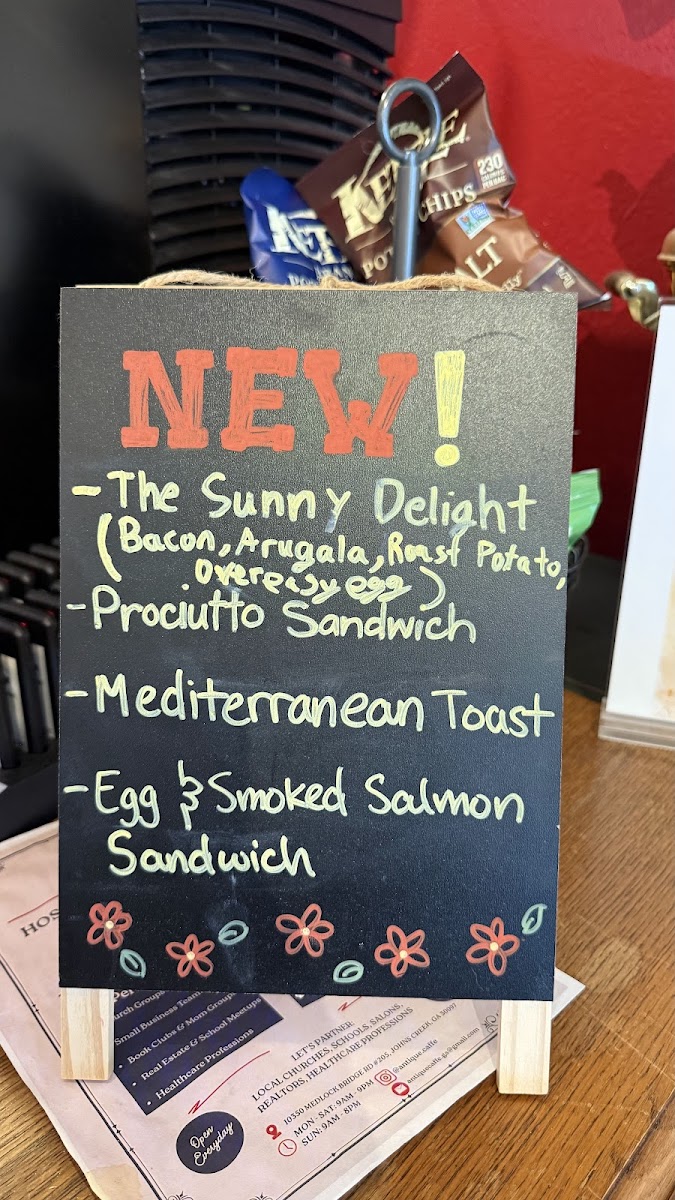 KETTLE
230
CHIPS
NEW!
- The Sunny Delight
(Bacon, Arugala, Roast Potato,
overeasy egg)
- Prociutto Sandwich
- Mediterranean Toast
- Egg & Smoked Salmon
Sandwich
HOS
Small Business Team
• Book Clubs & Mom Groups
• Real Estate & School Meetups
• Healthcare Professions
LET'S PARTNER:
LOCAL CHURCHES, SCHOOLS, SALONS,
REALTORS, HEALTHCARE PROFESSIONS
10350 MEDLOCK BRIDGE RD #205, JOHNS CREEK, GA 30097
MON - SAT: 9AM - 9PM
SUN: 9AM - 8PM
@antique.caffe
antiquecaffe.ga@gmail.com
Open
Everyday